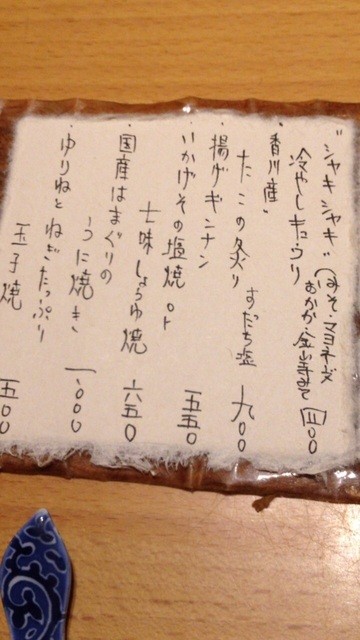 ・"シャキシャキ" (みそ・マヨネーズ
冷やしキュウリ おかか・金山寺みそ 四〇〇
・香川産、
たこの炙り すだち塩 九〇〇
・揚げギンナン 五五〇
・いかげその塩焼 or
七味しょうゆ焼 六五〇
・国産はまぐりの
うに焼き 一、〇〇〇
・ゆりねとねぎたっぷり
玉子焼 五〇〇